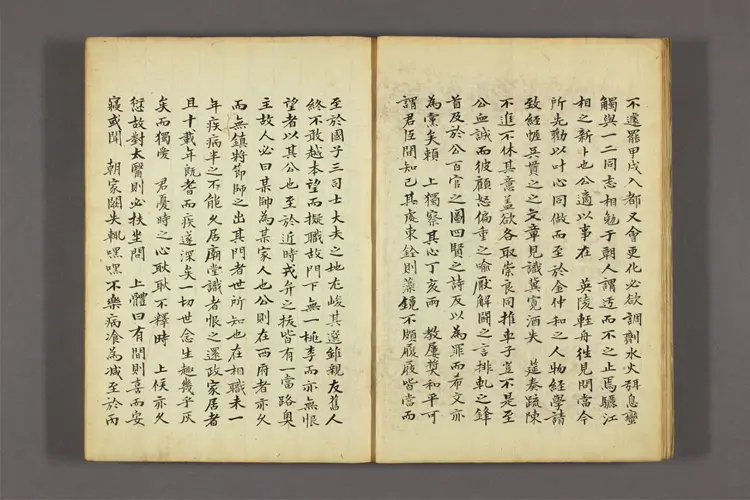 不遑罷甲戌入都又會更化必欲調劑水火弭息蠻
觸與一二同志相勉于朝人謂近而不之止焉驪江
相之新卜也公適以事在 英陵輕舟往見問當今
所先勸以叶心同做而至於金仲和之人物經學請
致經幄吳貫之之文章見識冀寬酒失 筵奏疏陳
不進不休其意盖欲各取崇良同推車子豈不是至
公血誠而彼顧怒偏重之喻厭解鬪之言排軋之鋒
首及於公百官之圖四賢之詩反以為罪而希文亦
為黨矣賴 上獨察其心丁亥兩 教屢奬和平可
謂君臣間知己其處東銓則藻鏡不頗屐屐皆當而
至於國子三司士大夫之地尤峻其選雖親友舊人
終不敢越本望而擬職故門下無一桃李而亦無恨
望者以其公也至於近時戎弁之拔皆有一當路奥
主故人必曰某帥為某家人也公則在西府者亦久
而無鎮將節師之出其門者世所知也在相職未一
年疾病半之不能久居廟堂識者恨之還政家居者
且十載年既耆而疾遂深矣一切世念生趣幾乎灰
矣而獨愛 君憂時之心耿耿不釋時 上候亦久
愆故對太醫則必扶坐問 上體曰有間則喜而安
寢或聞 朝家闕失輒嘿嘿不樂病飡為减至於丙